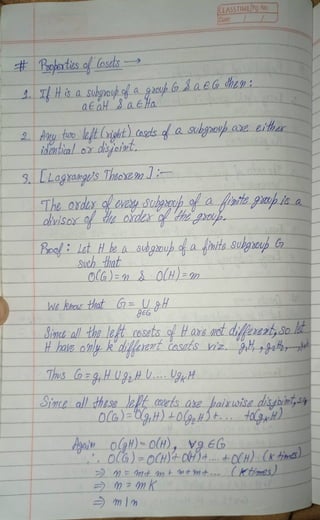 CLASSTIME Pg. No.
Date / /
# Properties of Cosets →
1. If H is a subgroup of a group G & a ∈ G then :
a ∈ aH & a ∈ Ha
2. Any two left (right) cosets of a subgroup are either
identical or disjoint.
3. [Lagrange's Theorem] :-
The order of every subgroup of a finite group is a
divisor of the order of the group.
Proof : Let H be a subgroup of a finite subgroup G
such that
O(G) = n & O(H) = m
We know that G = ∪ gH
g∈G
Since all the left cosets of H are not different, so let
H have only k different cosets viz. g₁H, g₂H, ...,
Thus G = g₁H ∪ g₂H ∪ .... ∪ gₖH
Since all these left cosets are pairwise disjoint,
O(G) = O(g₁H) + O(g₂H) + ... + O(gₖH)
Again O(gH) = O(H), ∀ g ∈ G
∴ O(G) = O(H) + O(H) + ... + O(H) (k times)
⇒ n = m + m + m + m + ... (k times)
⇒ n = mk
⇒ m | n